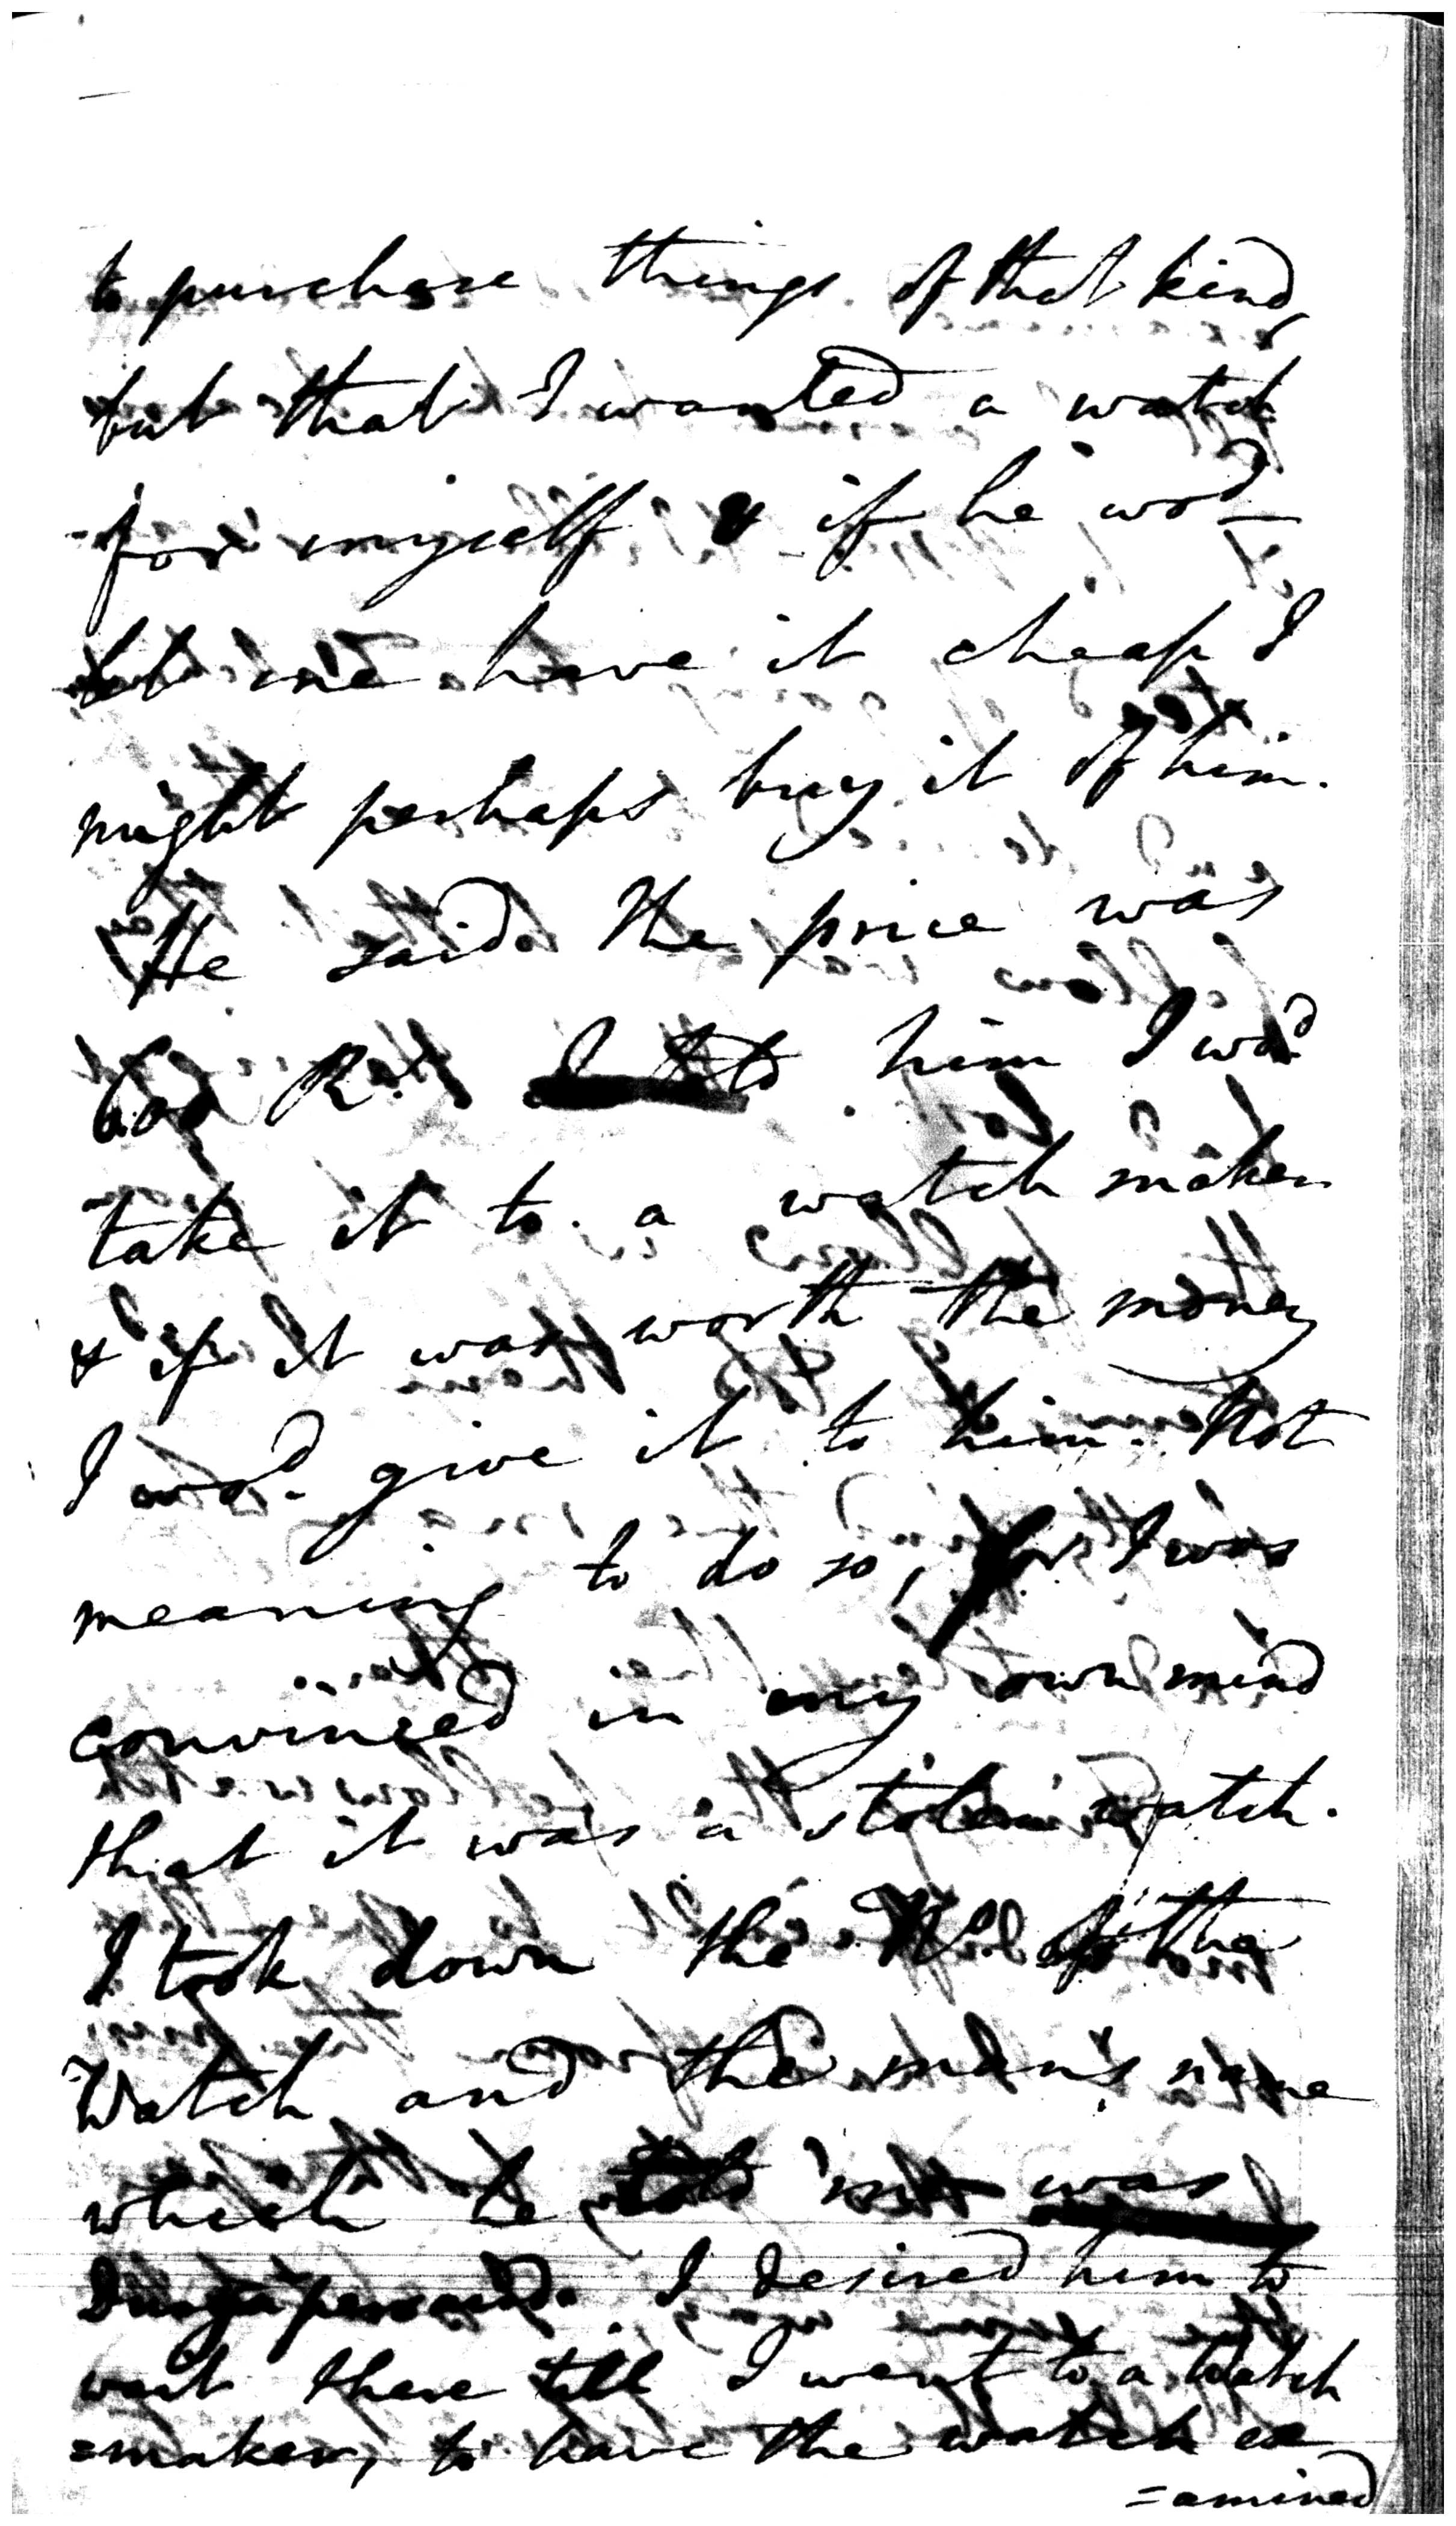 to purchase things of that kind
but that I wanted a watch
for myself & if he wod
let me have it cheap I
might perhaps buy it of him.
He said the price was
600 Rs. I told him I wod
take it to a watch maker
& if it was worth the money
I wod. give it to him. Not
meaning to do so, for I was
convinced in my own mind
that it was a stolen watch.
I took down the No. of the
Watch and the man's name
which he told me was
I desired him to
wait there till I went to a Watch
=maker, to have the watch ex
=amined